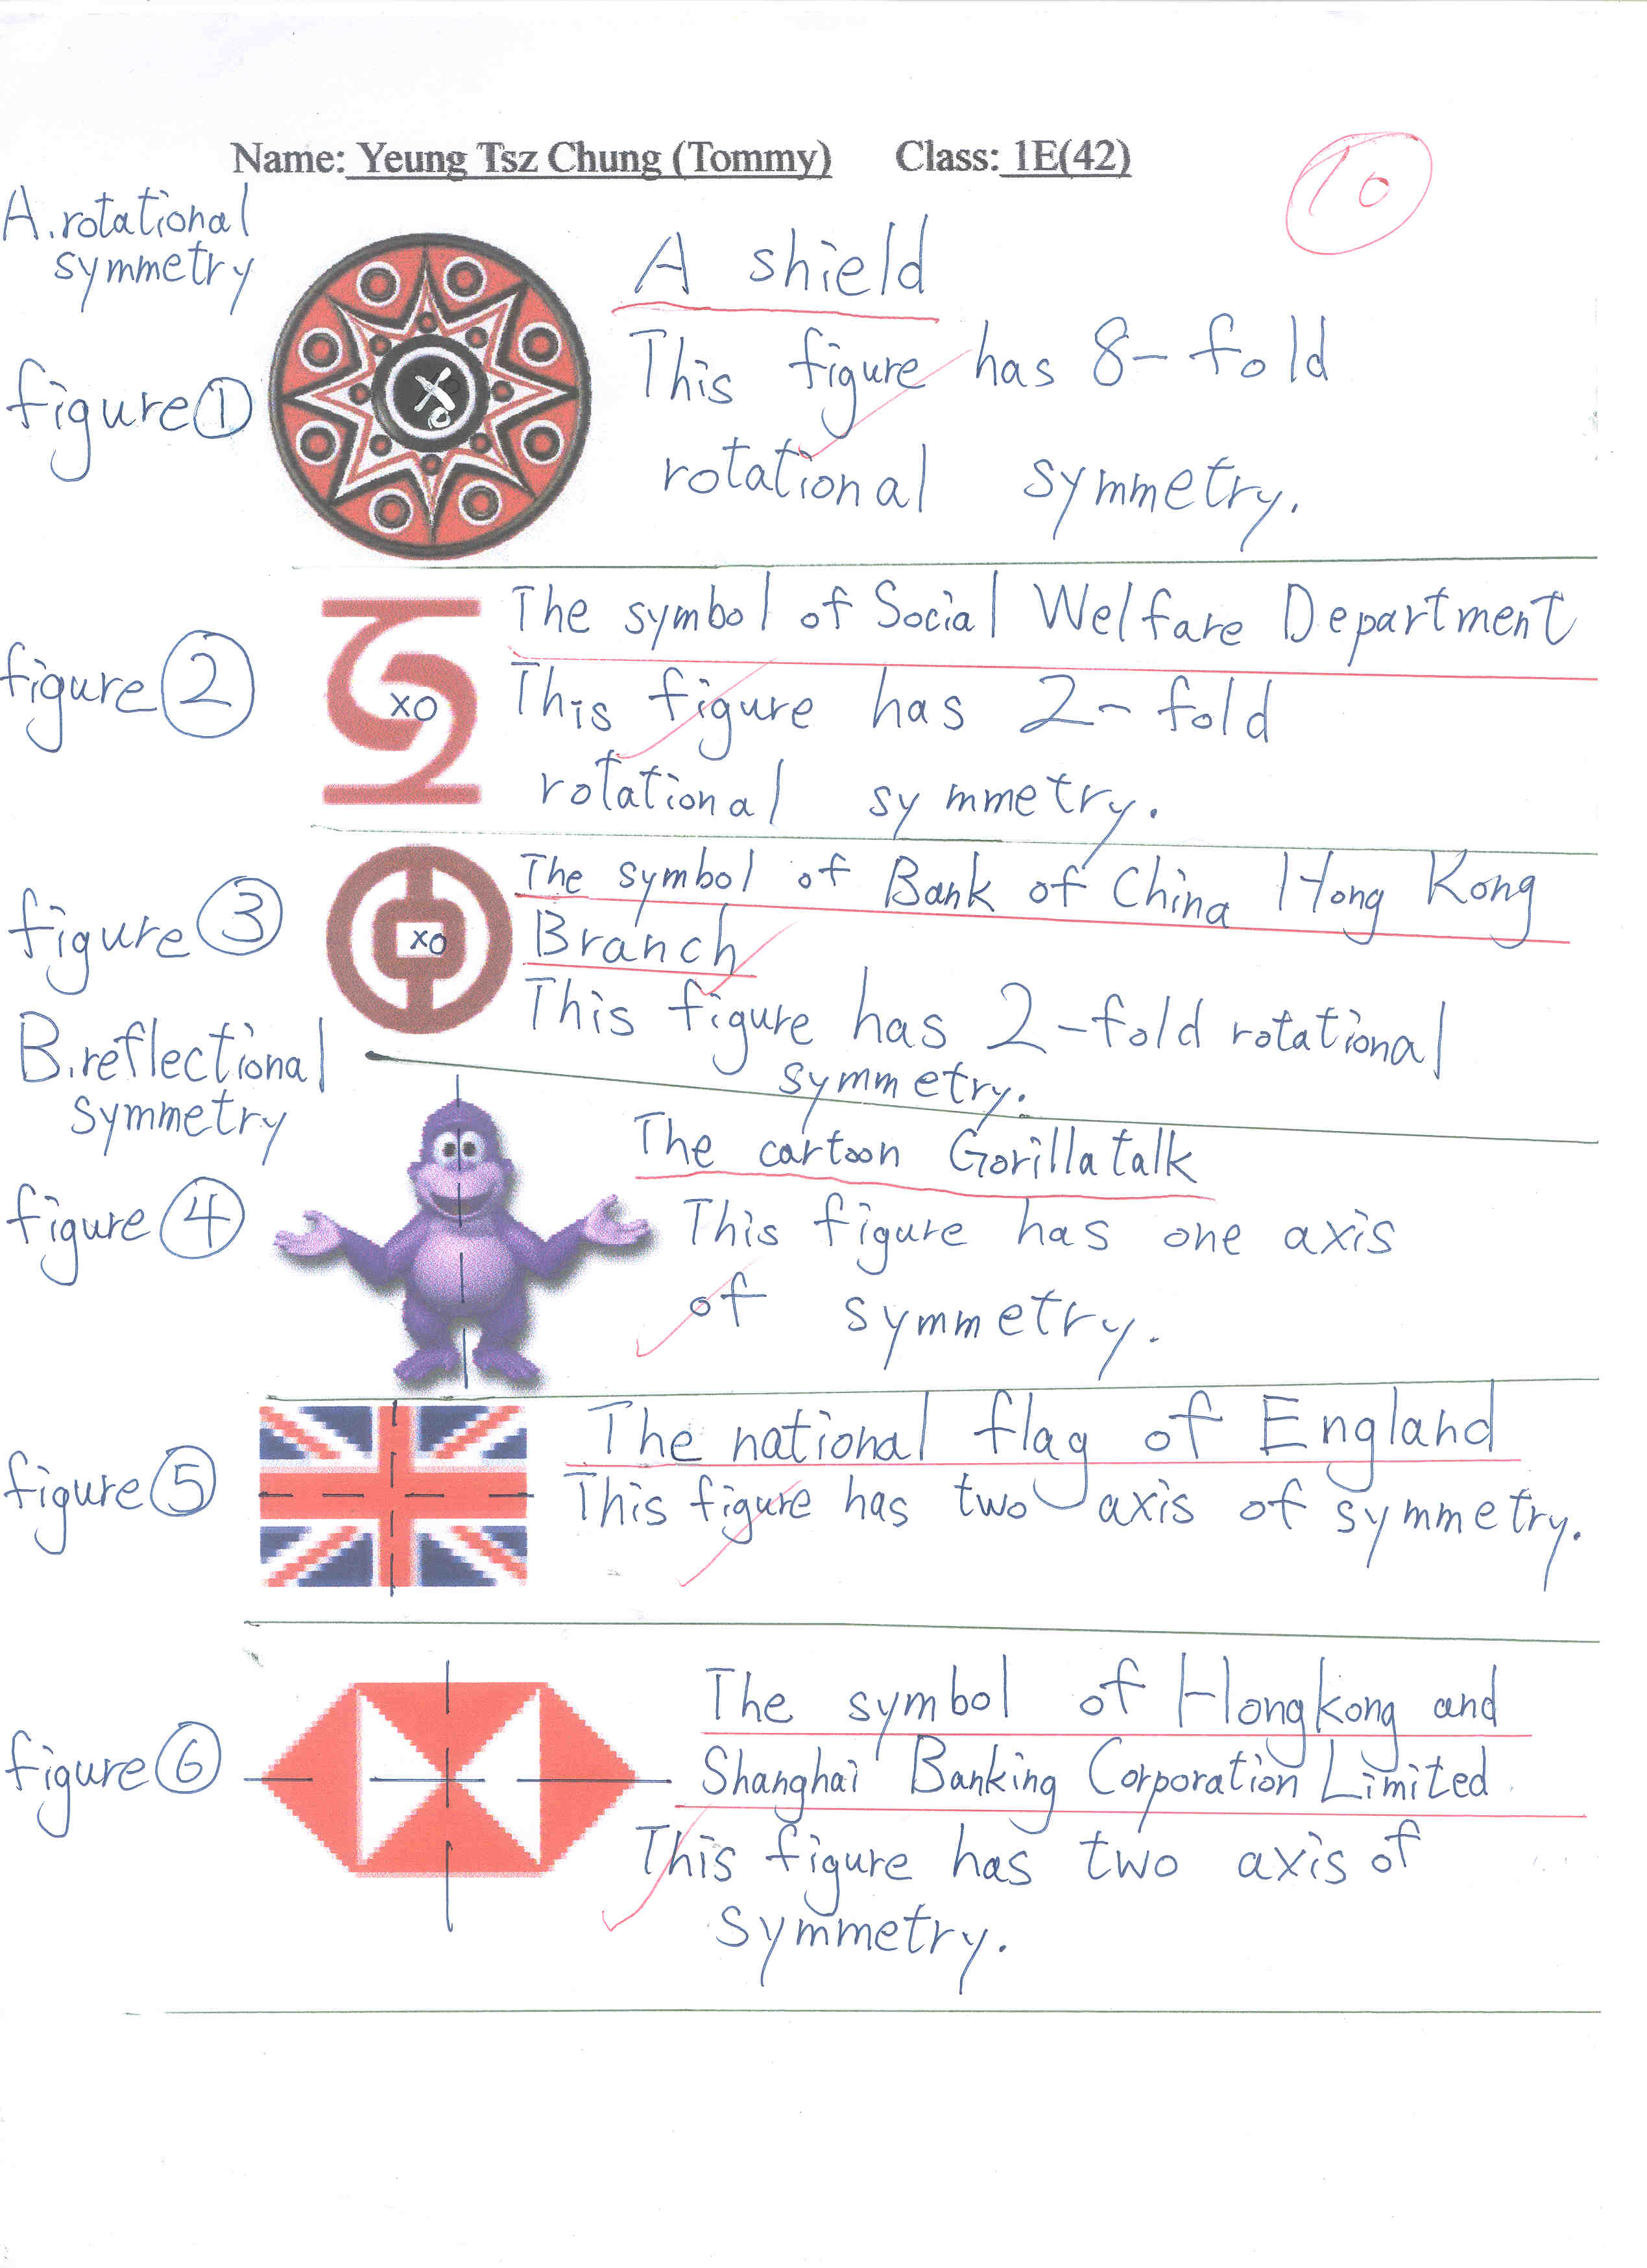 Name: Yeung Tsz Chung (Tommy) Class: 1E(42)
10
A. rotational
symmetry
figure ①
x o
A shield
This figure has 8-fold
rotational symmetry.
figure ②
xo
The symbol of Social Welfare Department
This figure has 2-fold
rotational symmetry.
figure ③
xo
The symbol of Bank of China Hong Kong
Branch
This figure has 2-fold rotational
symmetry.
B. reflectional
symmetry
figure ④
The cartoon Gorilla talk
This figure has one axis
of symmetry.
figure ⑤
The national flag of England
This figure has two axis of symmetry.
figure ⑥
The symbol of Hongkong and
Shanghai Banking Corporation Limited
This figure has two axis of
symmetry.